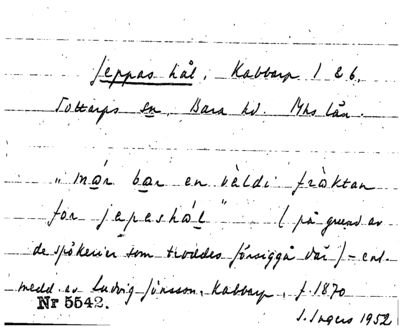 Jeppas hål, Kabbarp 1 & 6,
Tottarps sn, Bara hd. Mhs län.
"mǫr bar en väldi fräktan
for jepashål" (på grund av
de spökerier som troddes försiggå där) – enl.
medd. av Ludvig Jönsson, Kabbarp, f. 1870
Nr 5542.
I. Ingers 1952